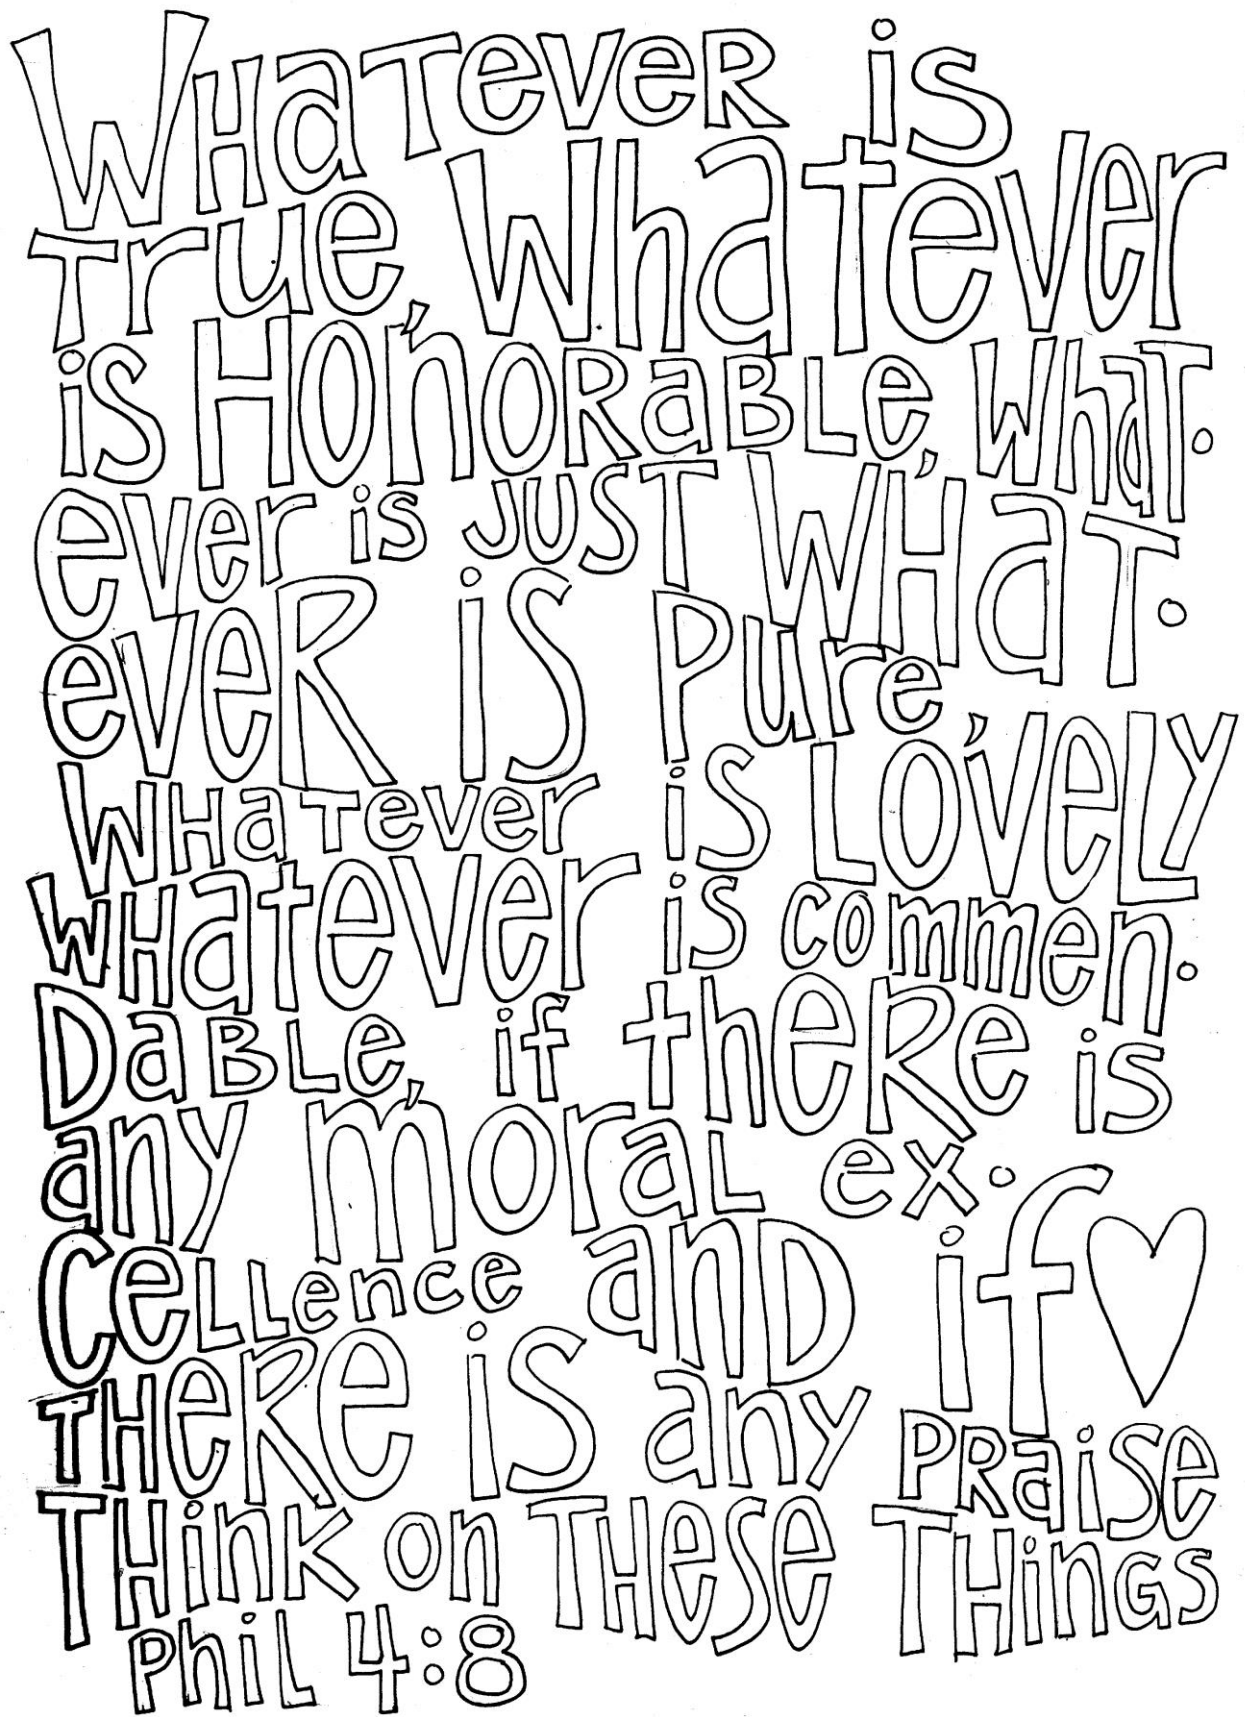 WHaTeveR is
True, Whatever
is HonORaBLe, WhaT·
ever is JUST WHaT·
eveR iS Pure,
WHaTever is LOveLY
WHatever is commen·
DaBLe, if theRe is
any moraL ex·
CeLLence anD if
THeRe iS any PRaiSe
THinK on THeSe THinGS
Phil 4:8